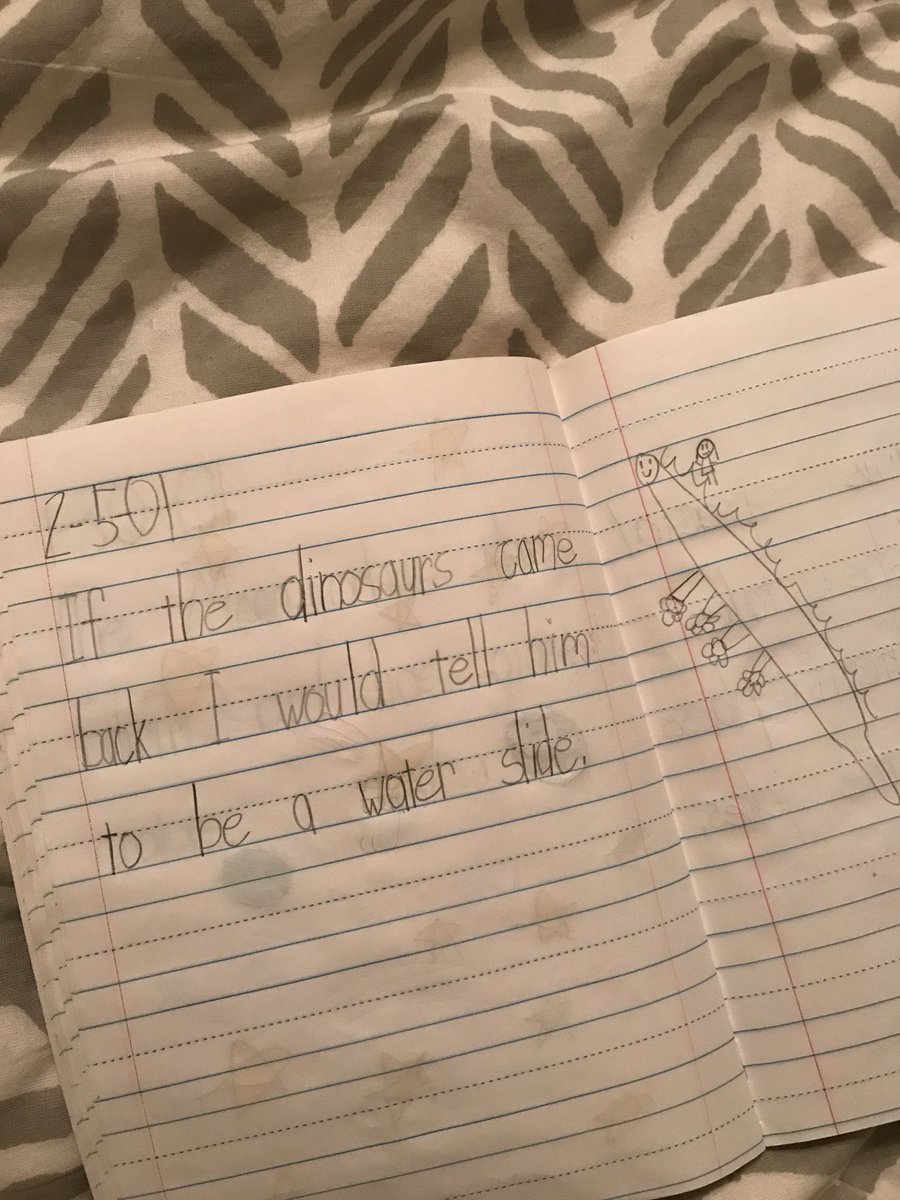 2-501
If the dinosaurs came
back I would tell him
to be a water slide.